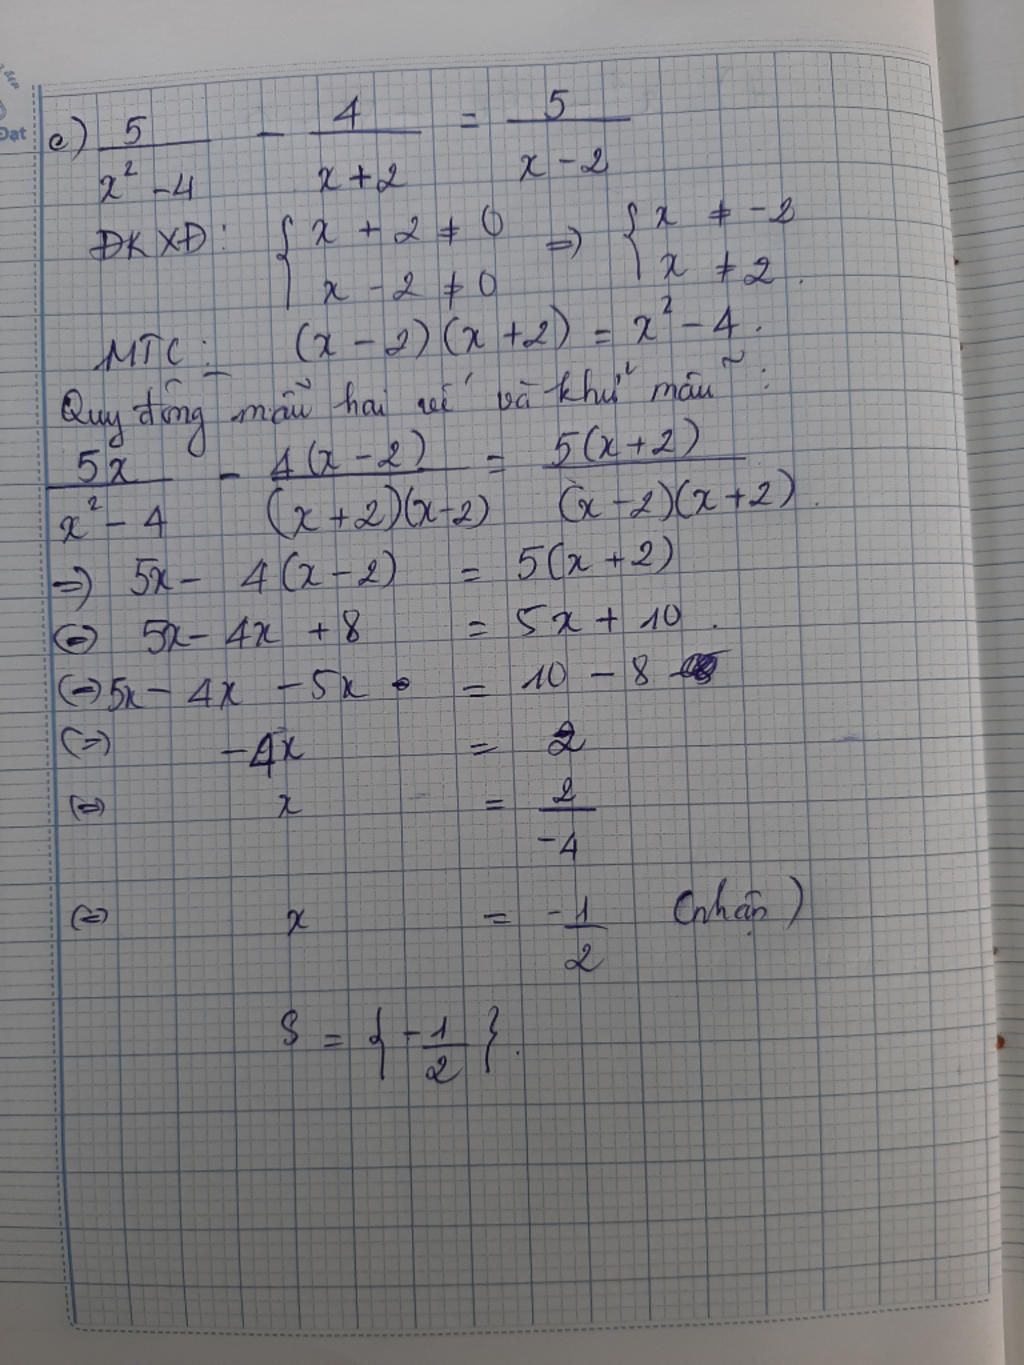 Đạt
c) 5/(x² - 4) - 4/(x + 2) = 5/(x - 2)
ĐKXĐ: { x + 2 ≠ 0 ; x - 2 ≠ 0 => { x ≠ -2 ; x ≠ 2 .
MTC: (x - 2)(x + 2) = x² - 4 .
Quy đồng mẫu hai vế và khử mẫu :
5x/(x² - 4) - 4(x - 2)/((x + 2)(x - 2)) = 5(x + 2)/((x - 2)(x + 2)) .
=> 5x - 4(x - 2) = 5(x + 2)
<=> 5x - 4x + 8 = 5x + 10 .
<=> 5x - 4x - 5x = 10 - 8
<=> -4x = 2
<=> x = 2/-4
<=> x = -1/2 (nhận)
S = { -1/2 } .